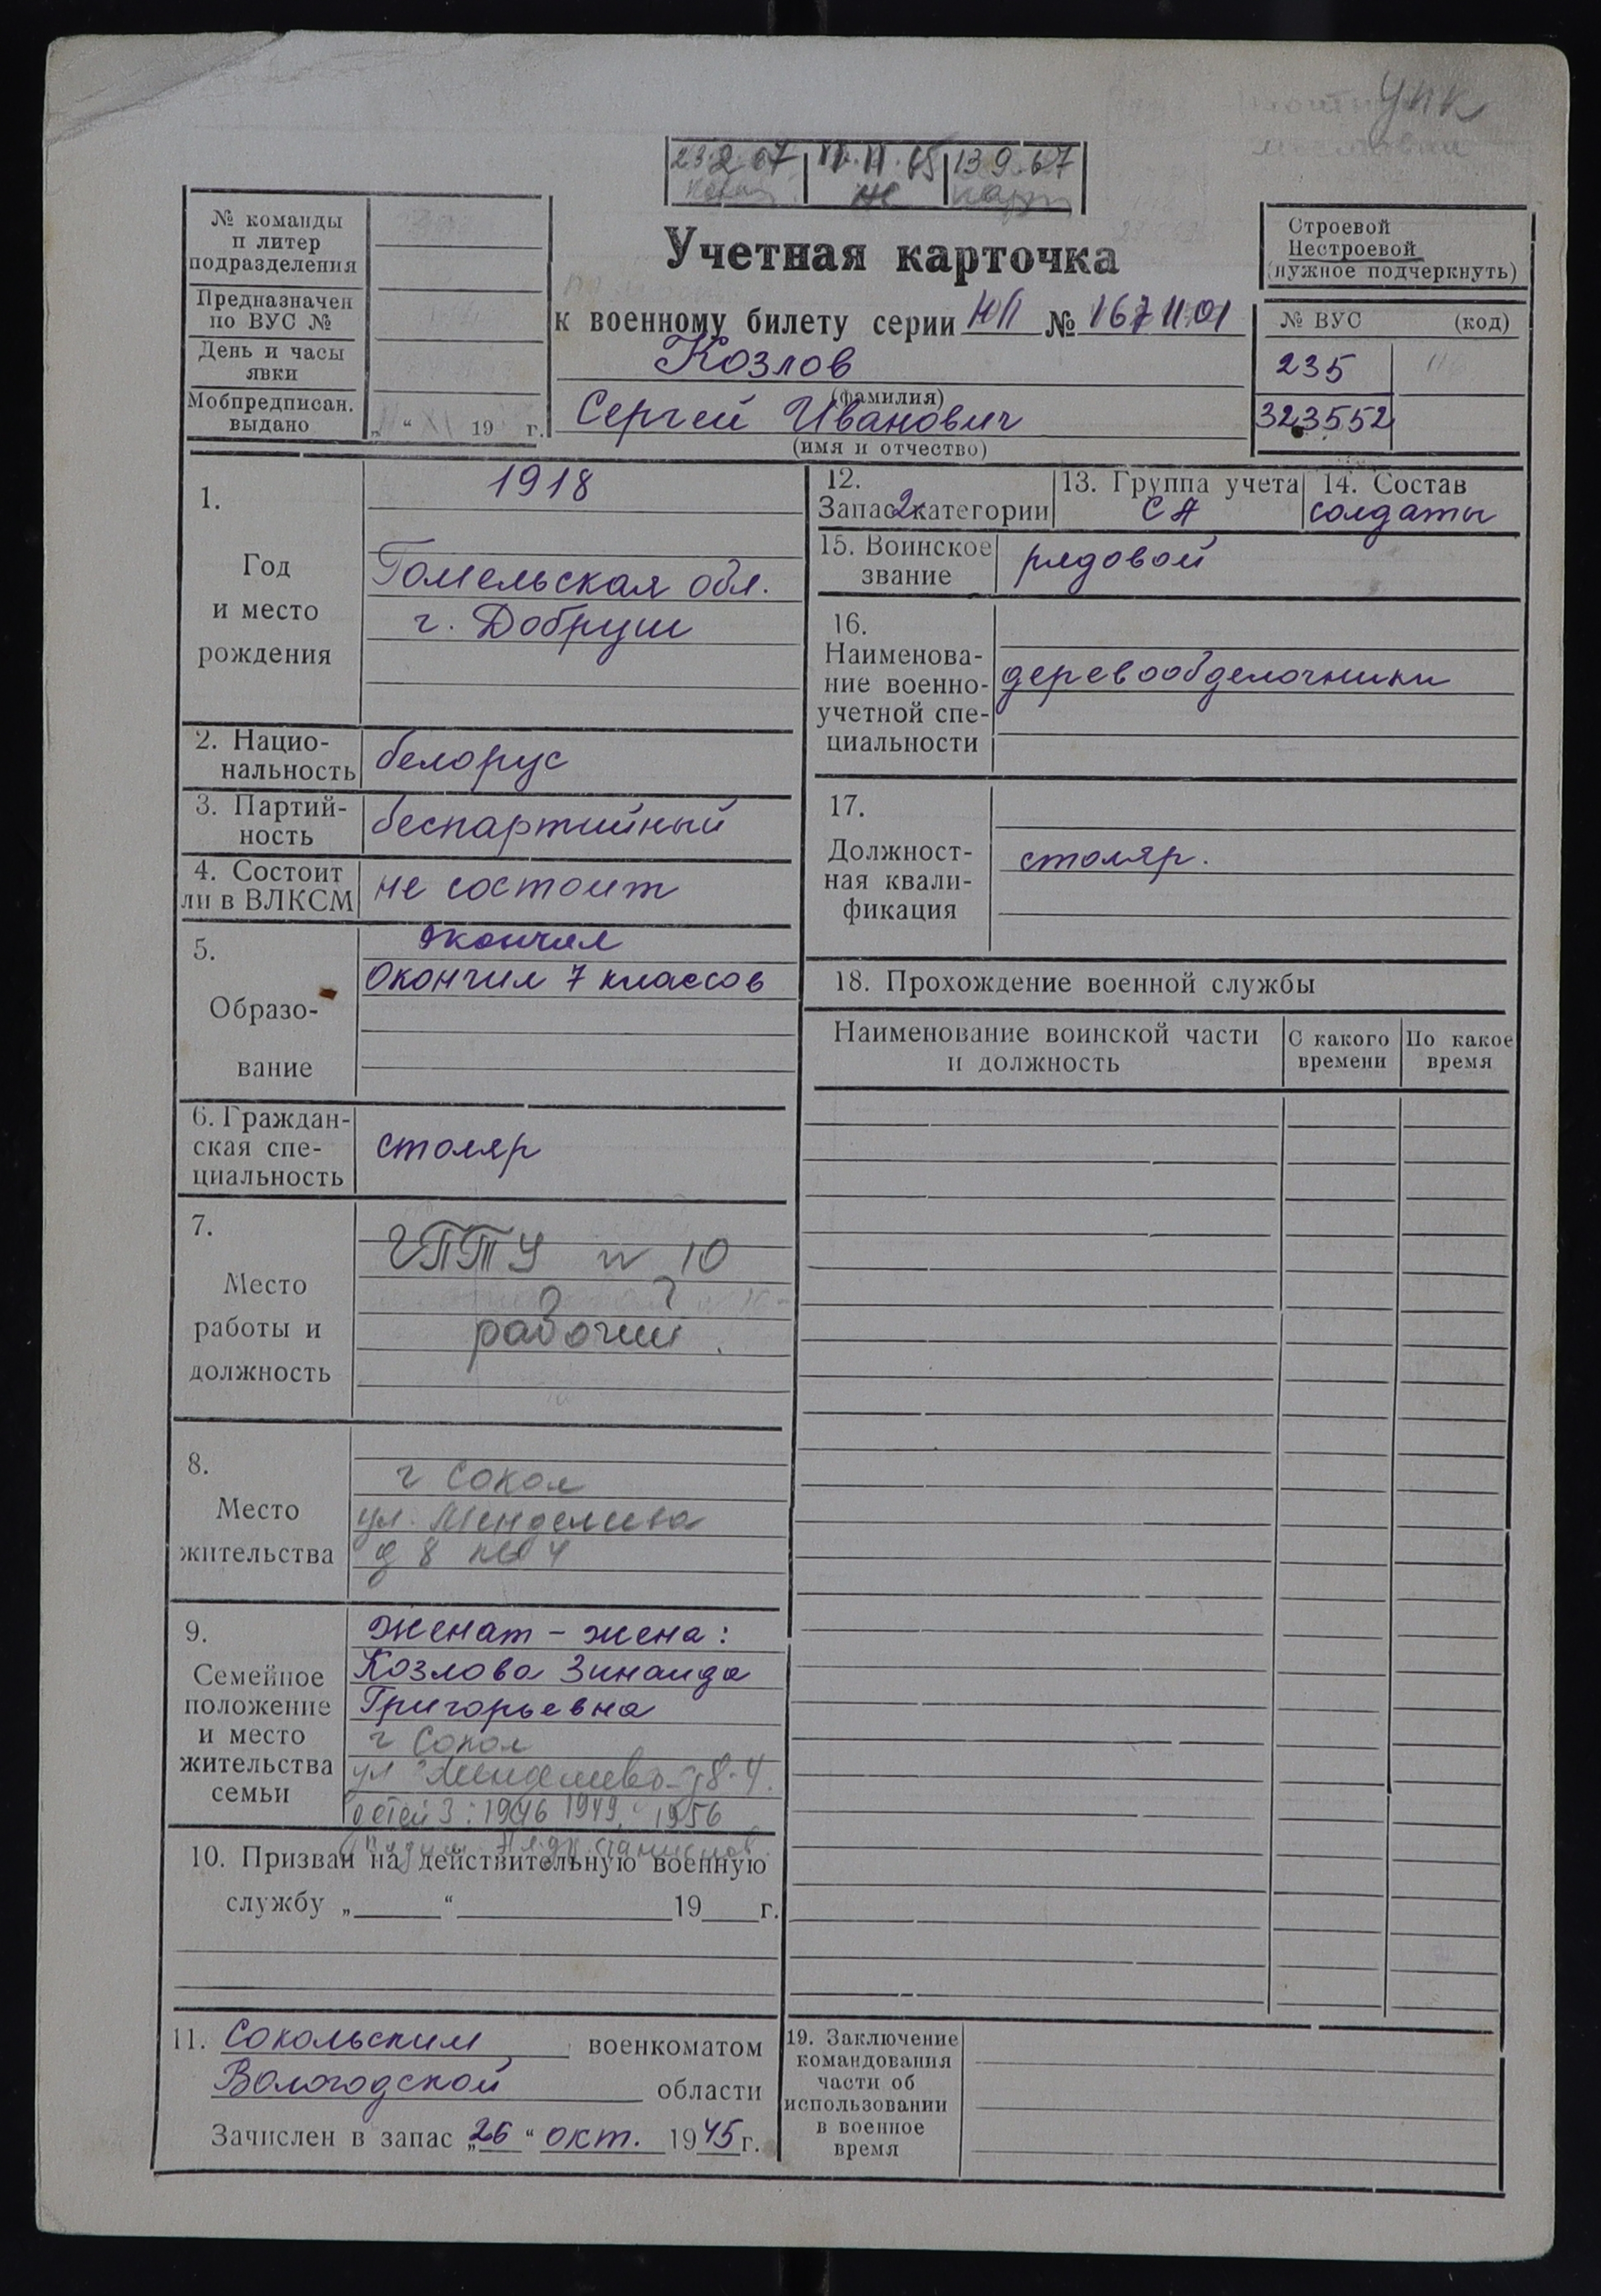 УПК
23.2.67 11.11.65 13 9.67
№ команды
п литер
подразделения
Предназначен
по ВУС №
День и часы
явки
Мобпредписан.
выдано
„ “ XI 19 г.
Учетная карточка
к военному билету серии НП № 1671101
Козлов
(фамилия)
Сергей Иванович
(имя и отчество)
Строевой
Нестроевой
(нужное подчеркнуть)
№ ВУС (код)
235
323552
1.
Год
и место
рождения
1918
Гомельская обл.
г. Добруш
2. Нацио-
нальность
белорус
3. Партий-
ность
беспартийный
4. Состоит
ли в ВЛКСМ
не состоит
5.
Образо-
вание
Окончил
Окончил 7 классов
6. Граждан-
ская спе-
циальность
столяр
7.
Место
работы и
должность
ГПТУ № 10
рабочий.
8.
Место
жительства
г Сокол
ул. Менделеева
д 8 кв 4
9.
Семейное
положение
и место
жительства
семьи
Женат - жена:
Козлова Зинаида
Григорьевна
г Сокол
ул Менделеева д 8-4.
детей 3: 1946 1949, 1956
10. Призван на действительную военную
службу „ “ 19 г.
11. Сокольским военкоматом
Вологодской области
Зачислен в запас „26“ окт. 1945 г.
12.
Запас 2 категории
13. Группа учета
СА
14. Состав
солдаты
15. Воинское
звание
рядовой
16.
Наименова-
ние военно-
учетной спе-
циальности
деревообделочники
17.
Должност-
ная квали-
фикация
столяр.
18. Прохождение военной службы
Наименование воинской части
и должность
С какого
времени
По какое
время
19. Заключение
командования
части об
использовании
в военное
время